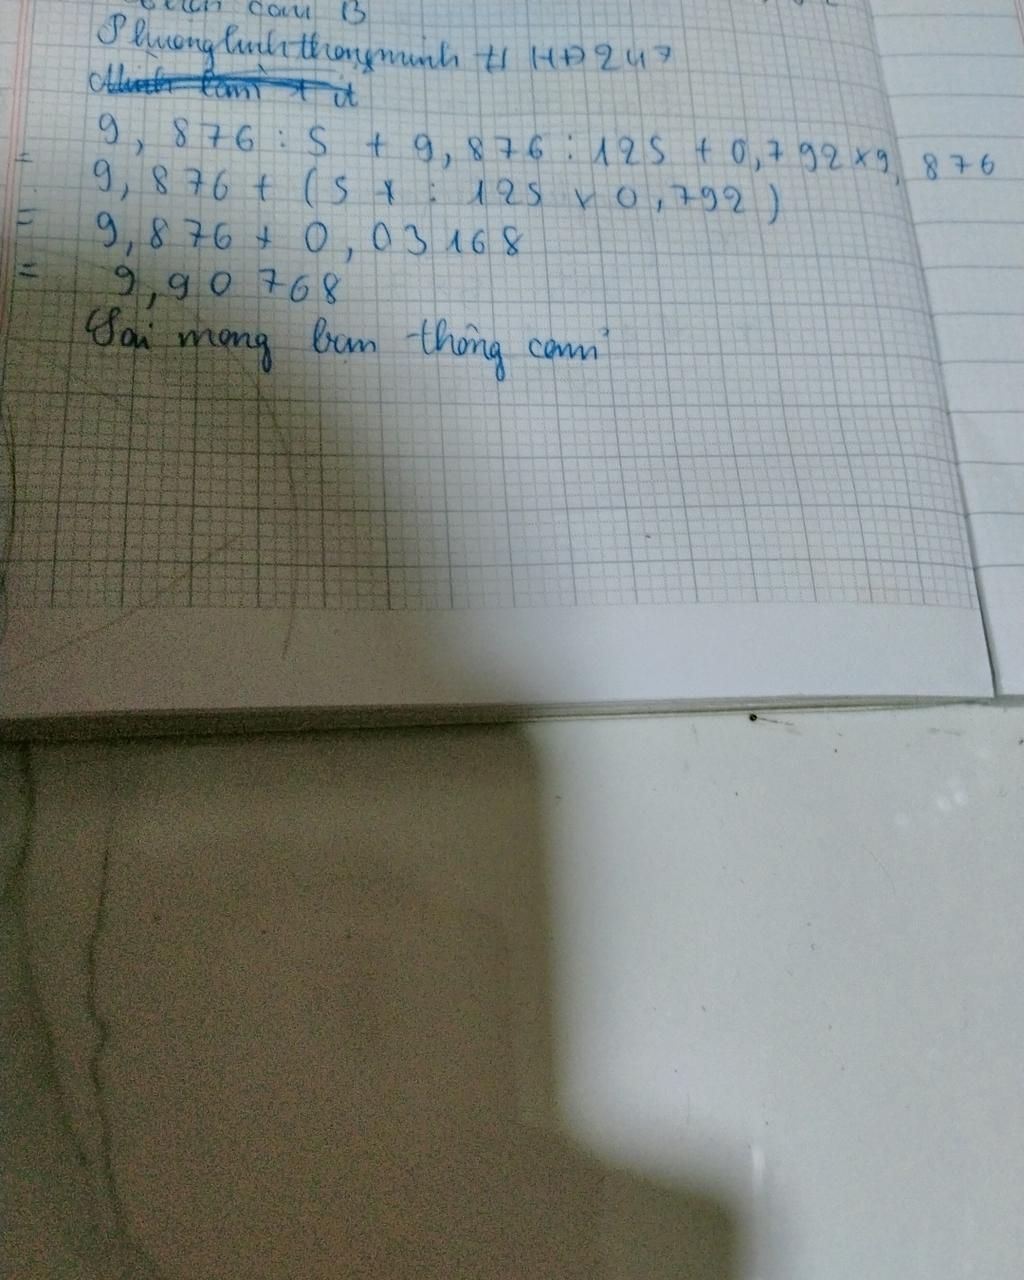 cam B
Phuonglinhthongminh # HĐ247
9,876 : 5 + 9,876 : 125 + 0,792 x 9,876
= 9,876 + (5 + : 125 x 0,792)
= 9,876 + 0,03168
= 9,90768
Sai mong bạn thông cảm